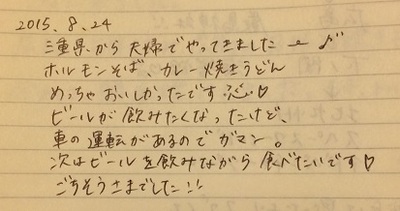 2015.8.24
三重県から夫婦でやってきました〜♪
ホルモンそば、カレー焼きうどん
めっちゃおいしかったです♡
ビールが飲みたくなったけど、
車の運転があるのでガマン。
次はビールを飲みながら食べたいです♡
ごちそうさまでした!!